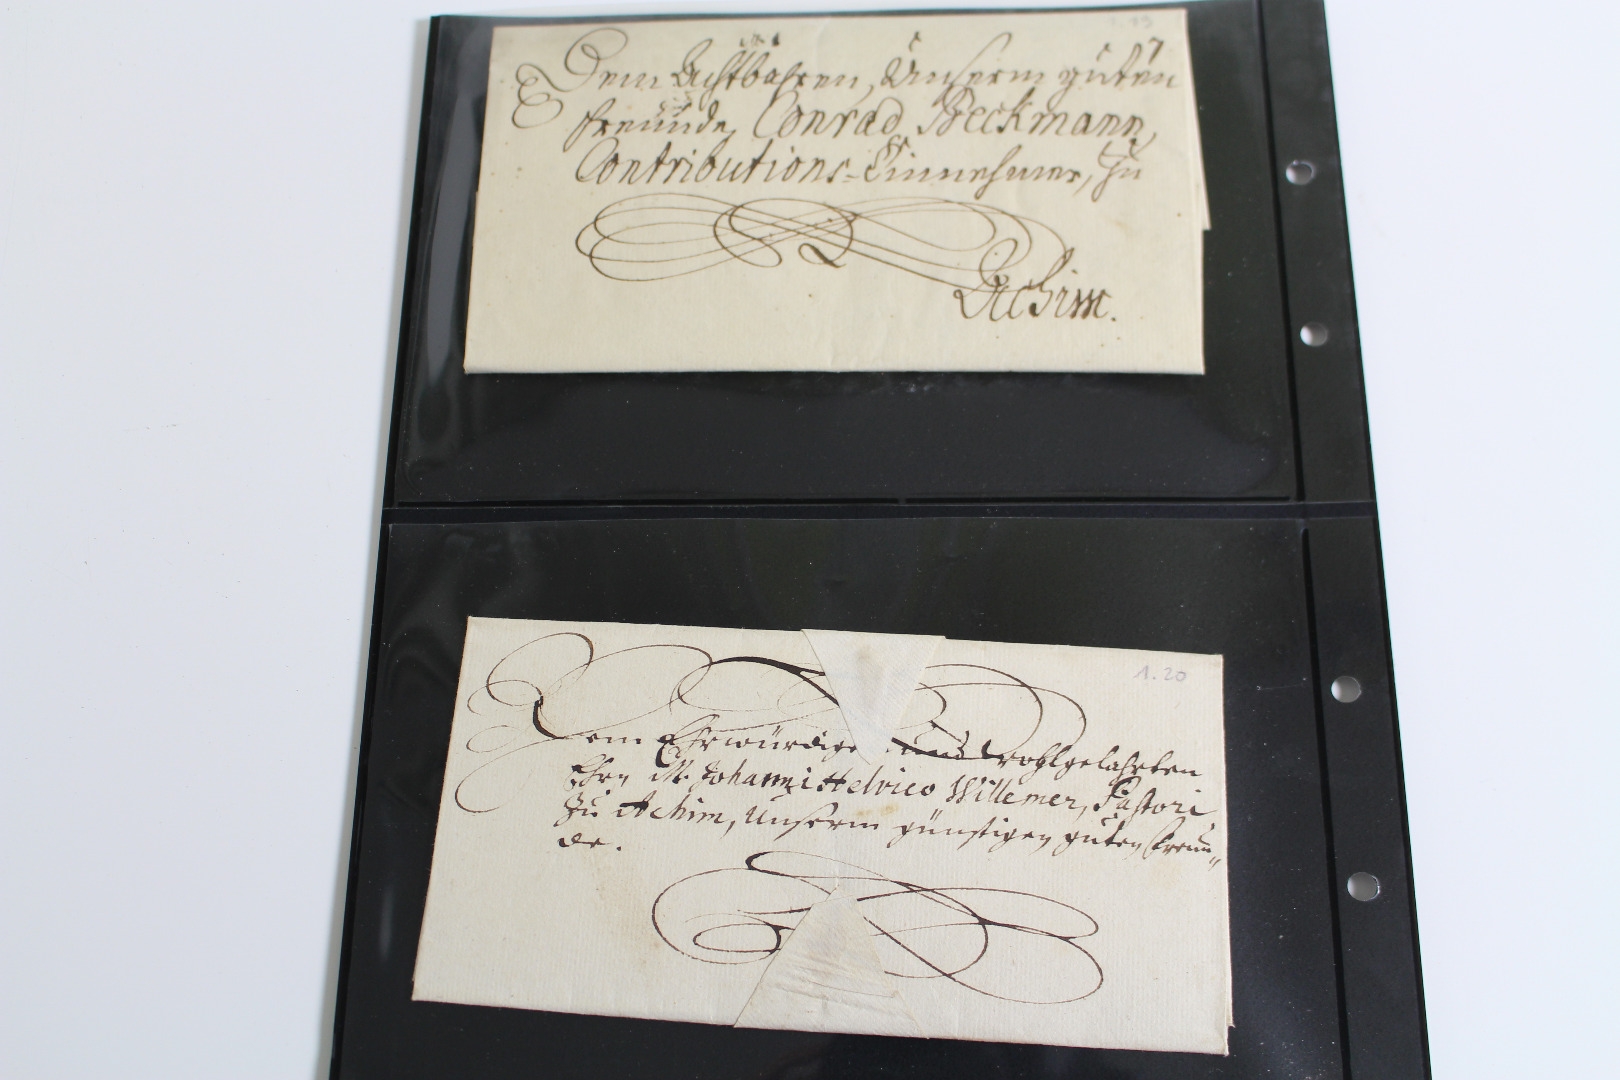 1.19
Dem Achtbahren, Unserm guten
freunde, Conrad Beckmann,
Contributions-Einnehmer, zu
Achim.
1.20
Dem Ehrwürdigen und Wohlgelahrten
Ehrn M. Johanni Helvico Willemer, Pastori
zu Achim, Unserm günstigen guten freun„
de.